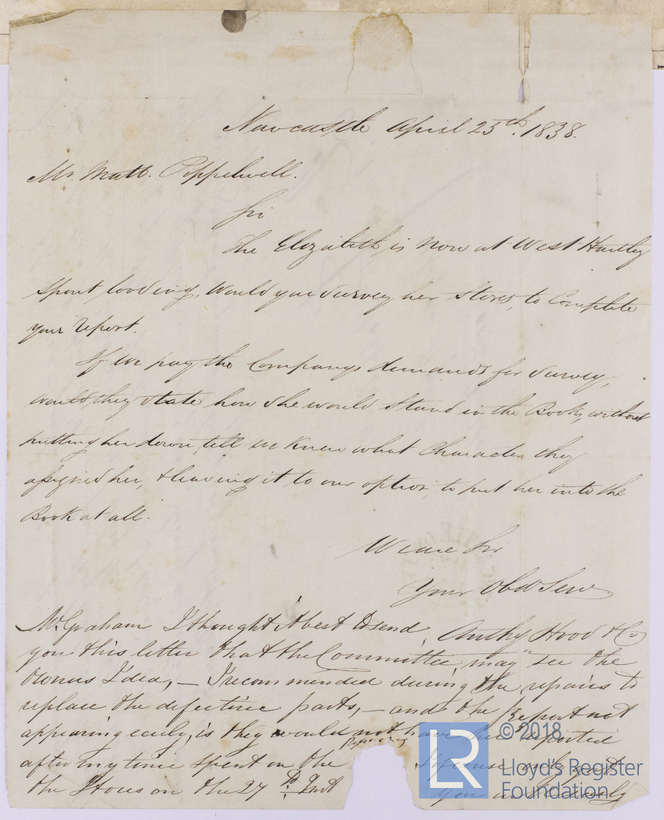 Newcastle April 25th. 1838.
Mr. Matt. Poppelwell.
Sir
The Elizabeth, is now at West Hartley
Spout, loading, Would you survey her Stores, to Complete
your report.
If we pay the Companys demands for Survey,
would they state how she would Stand in the Book, without
putting her down, till we knew what Character they
assigned her, & leaving it to our option, to put her into the
Book at all.
We are Sir
Your Obdt Serv
Anthy Hood & Co
Mr. Graham I thought it best to send
you this letter that the Committee may see the
Owners Idea, — I recommended during the repairs to
replace the defective parts, — and the Report not
appearing early, is they would not have her reported
after my time spent in the Repairing
the Stores on the 27th. Inst
© 2018
Lloyd's Register
Foundation
LR